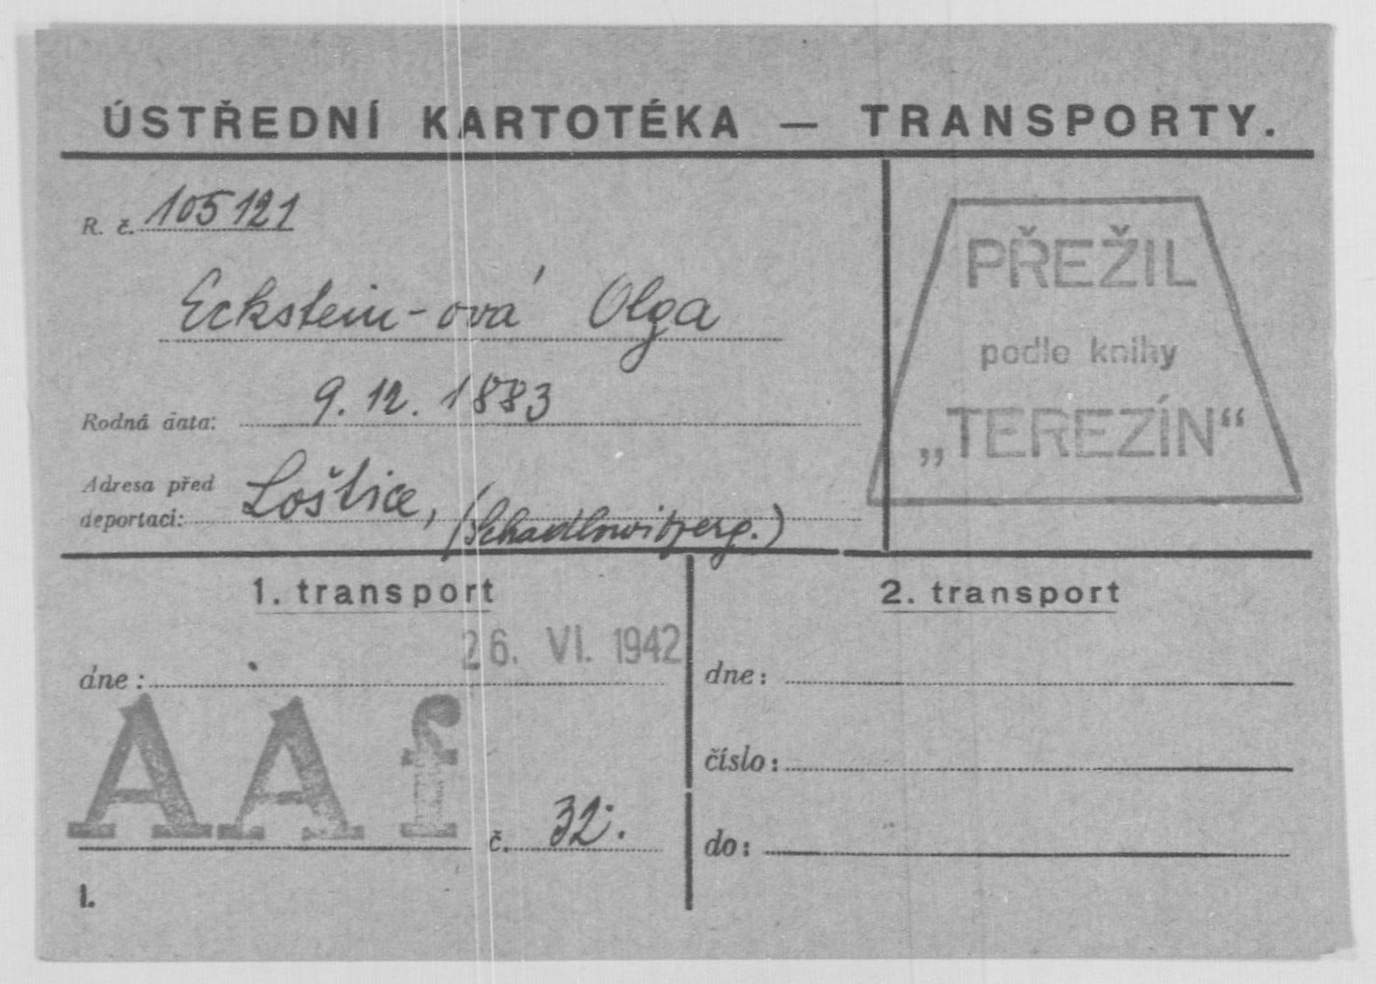 ÚSTŘEDNÍ KARTOTÉKA — TRANSPORTY.
R. č. 105121
Eckstein-ová Olga
Rodná data: 9. 12. 1883
Adresa před
deportací: Loštice,
PŘEŽIL
podle knihy
„TEREZÍN“
1. transport
dne: 26. VI. 1942
AAf
č. 32.
I.
2. transport
dne:
číslo:
do: